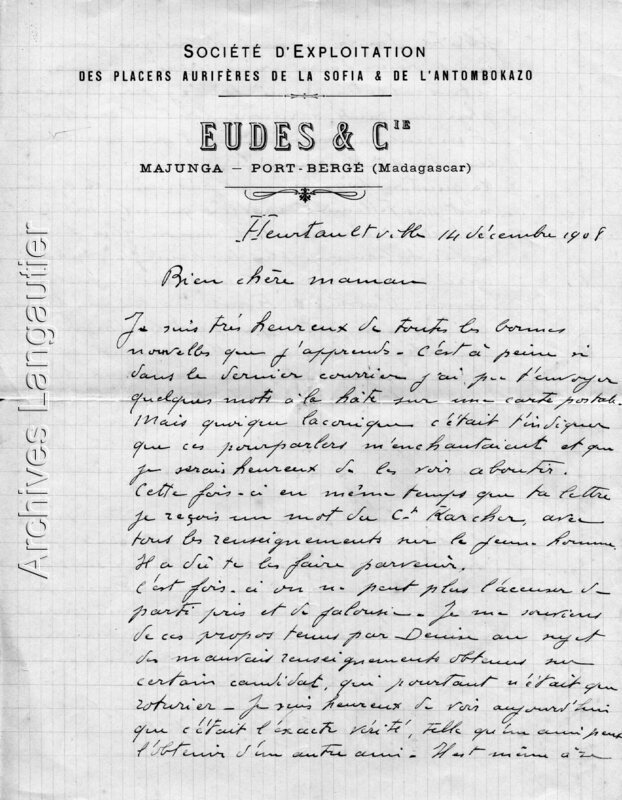 SOCIÉTÉ D'EXPLOITATION
DES PLACERS AURIFÈRES DE LA SOFIA & DE L'ANTOMBOKAZO
EUDES & CIE
MAJUNGA — PORT-BERGÉ (Madagascar)
Heurtaultville 14 décembre 1908
Bien chère maman
Je suis très heureux de toutes les bonnes
nouvelles que j'apprends - C'est à peine si
dans le dernier courrier j'ai pu t'envoyer
quelques mots à la hâte sur une carte postale.
Mais quoique laconique c'était t'indiquer
que ces pourparlers m'enchantaient et que
je serais heureux de les voir aboutir.
Cette fois-ci en même temps que ta lettre
je reçois un mot du Ct Karcher, avec
tous les renseignements sur le jeune homme.
Il a dû te les faire parvenir.
C'est fois-ci on ne peut plus l'accuser de
parti pris et de jalousie - Je me souviens
de ces propos tenus par Denise au sujet
des mauvais renseignements obtenus sur
certain candidat, qui pourtant n'était que
roturier - Je suis heureux de voir aujourd'hui
que c'était l'exacte vérité, telle qu'un ami peut
l'obtenir d'un autre ami - Il est même
Archives Langautier